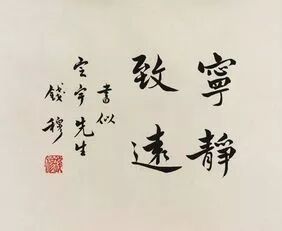 寧靜
致遠
書似
宏宇先生
錢穆